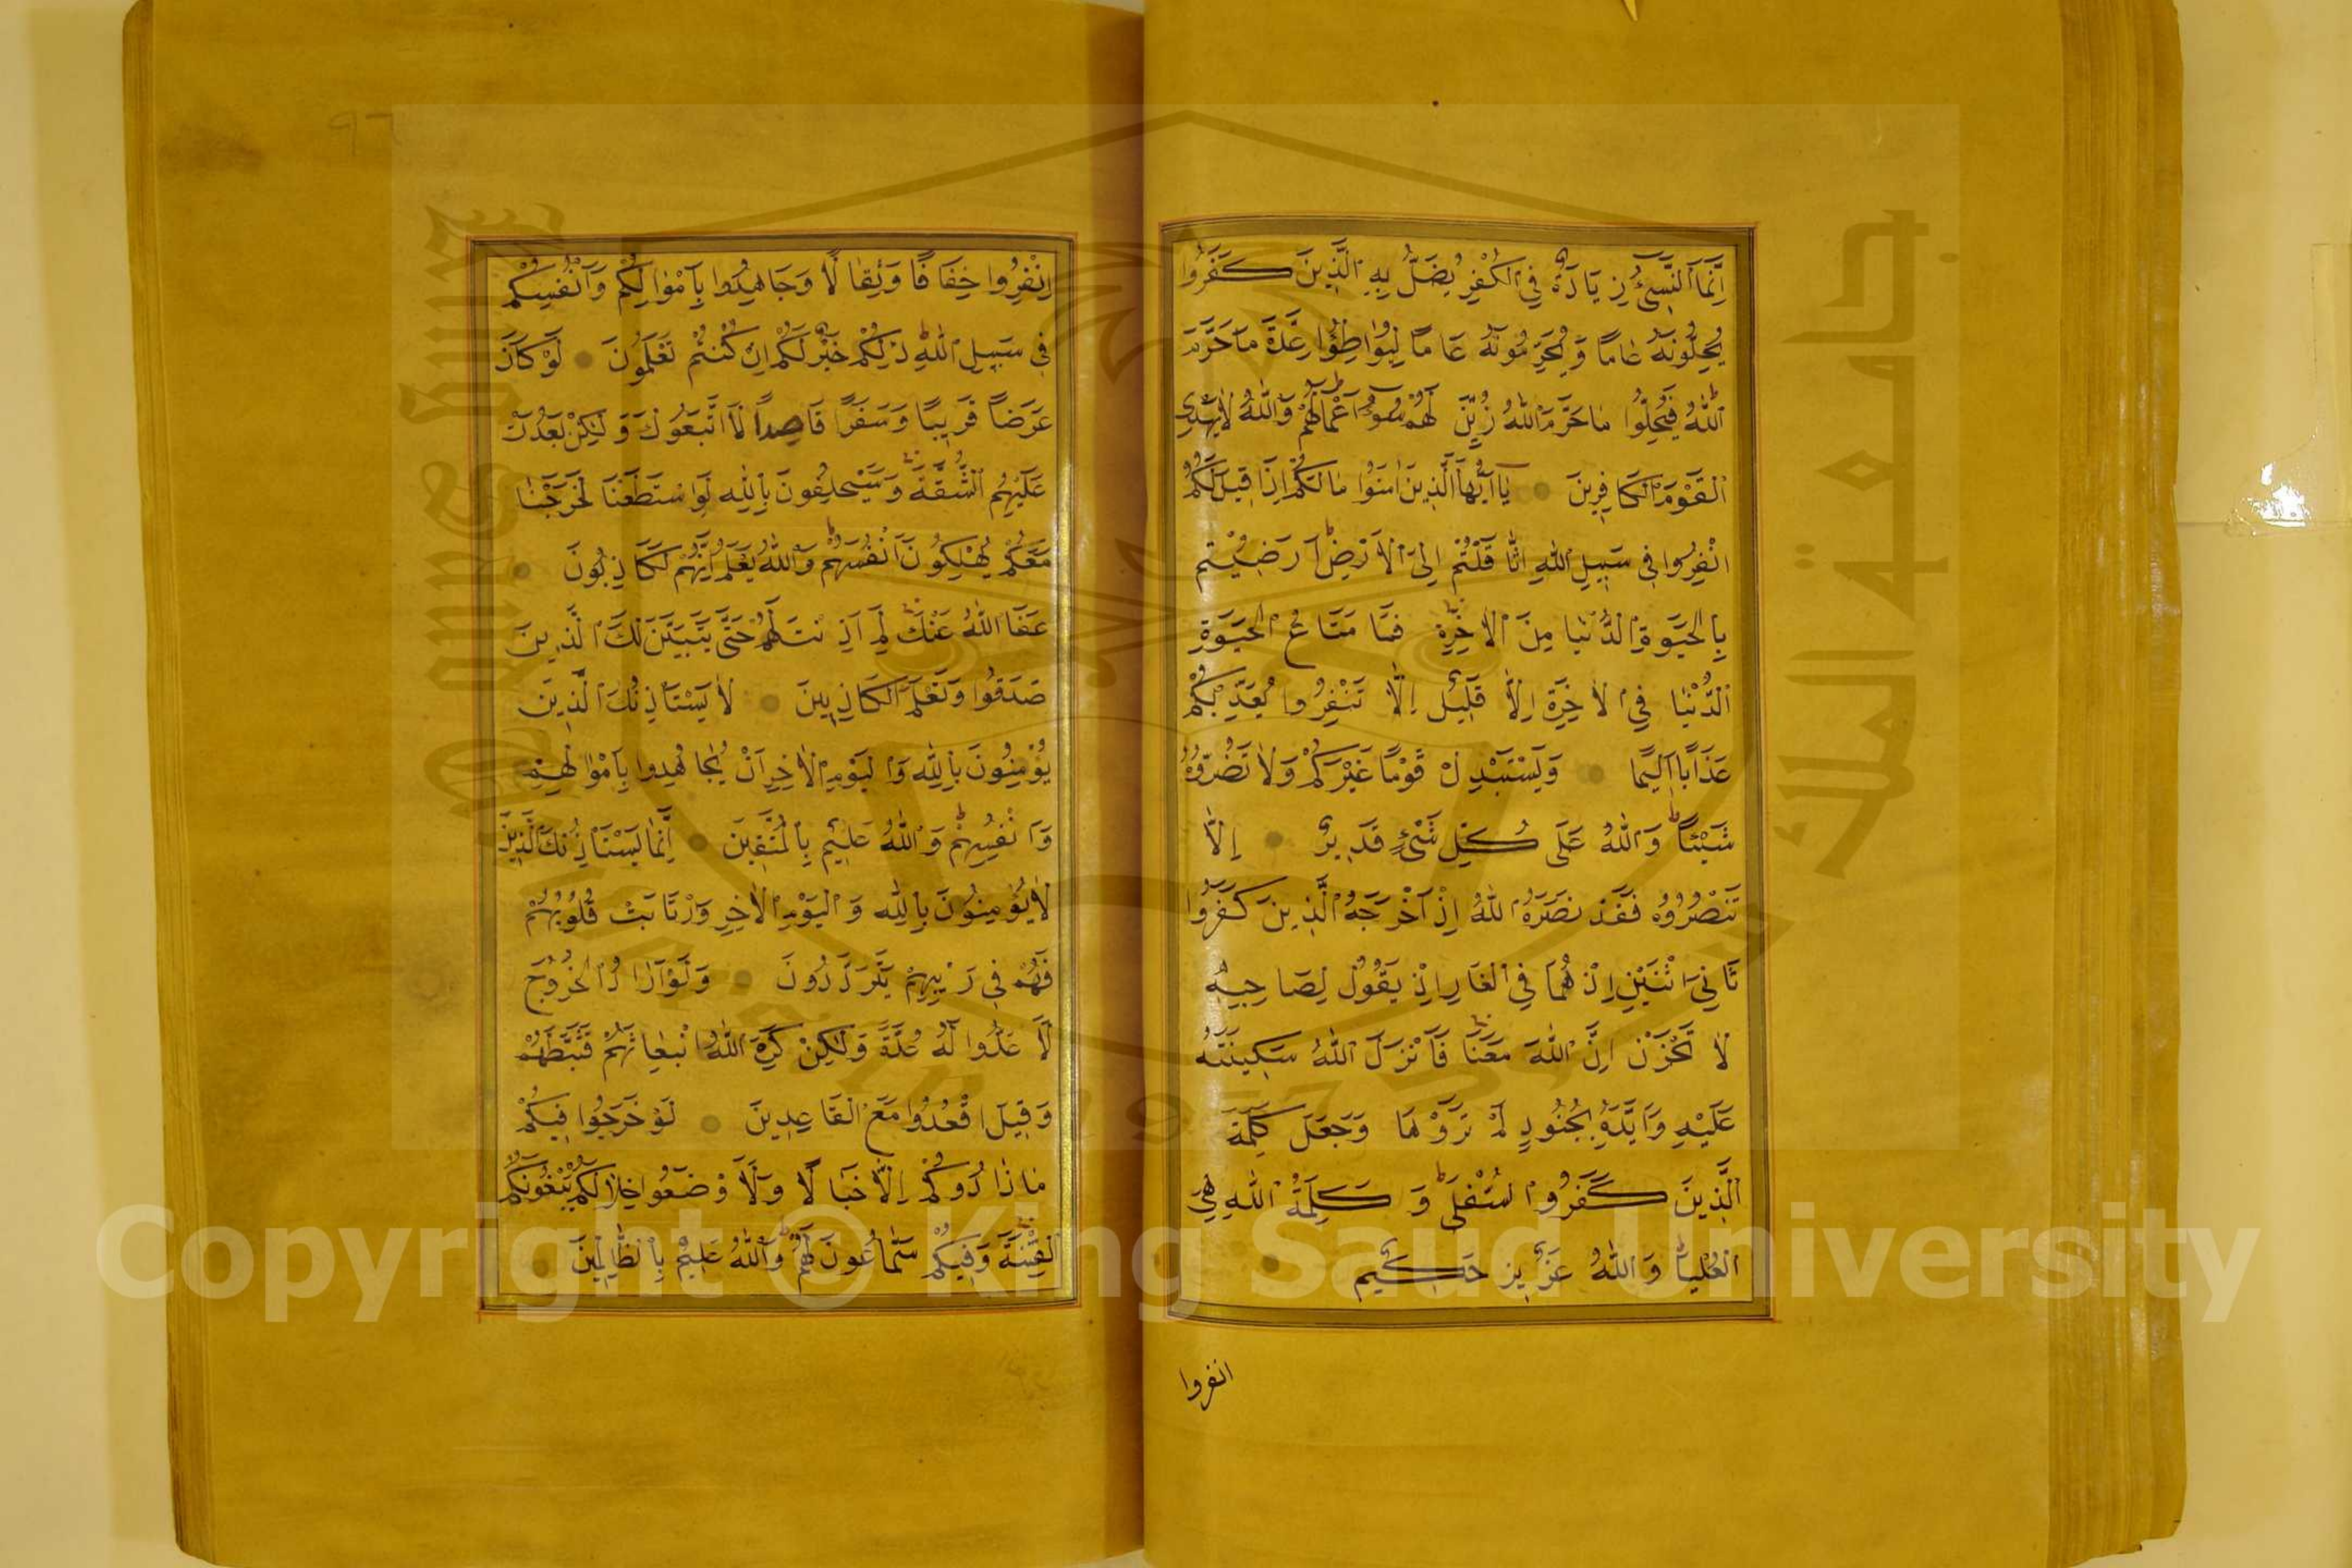 اِنَّمَا النَّسِیءُ زِيَادَةٌ فِي الْكُفْرِ يُضَلُّ بِهِ الَّذِينَ كَفَرُوا
يُحِلُّونَهُ عَامًا وَيُحَرِّمُونَهُ عَامًا لِيُوَاطِؤُا عِدَّةَ مَا حَرَّمَ
اللّٰهُ فَيُحِلُّوا مَا حَرَّمَ اللّٰهُ زُيِّنَ لَهُمْ سُوءُ اَعْمَالِهِمْ وَاللّٰهُ لَا يَهْدِي
الْقَوْمَ الْكَافِرِينَ يَا اَيُّهَا الَّذِينَ اٰمَنُوا مَا لَكُمْ اِذَا قِيلَ لَكُمُ
انْفِرُوا فِي سَبِيلِ اللّٰهِ اثَّاقَلْتُمْ اِلَى الْاَرْضِ اَرَضِيتُمْ
بِالْحَيٰوةِ الدُّنْيَا مِنَ الْاٰخِرَةِ فَمَا مَتَاعُ الْحَيٰوةِ
الدُّنْيَا فِي الْاٰخِرَةِ اِلَّا قَلِيلٌ اِلَّا تَنْفِرُوا يُعَذِّبْكُمْ
عَذَابًا اَلِيمًا وَيَسْتَبْدِلْ قَوْمًا غَيْرَكُمْ وَلَا تَضُرُّوهُ
شَيْئًا وَاللّٰهُ عَلَى كُلِّ شَيْءٍ قَدِيرٌ اِلَّا
تَنْصُرُوهُ فَقَدْ نَصَرَهُ اللّٰهُ اِذْ اَخْرَجَهُ الَّذِينَ كَفَرُوا
ثَانِيَ اثْنَيْنِ اِذْ هُمَا فِي الْغَارِ اِذْ يَقُولُ لِصَاحِبِهِ
لَا تَحْزَنْ اِنَّ اللّٰهَ مَعَنَا فَاَنْزَلَ اللّٰهُ سَكِينَتَهُ
عَلَيْهِ وَاَيَّدَهُ بِجُنُودٍ لَمْ تَرَوْهَا وَجَعَلَ كَلِمَةَ
الَّذِينَ كَفَرُوا السُّفْلَى وَكَلِمَةُ اللّٰهِ هِيَ
الْعُلْيَا وَاللّٰهُ عَزِيزٌ حَكِيمٌ
انفروا
٩٦
اِنْفِرُوا خِفَافًا وَثِقَالًا وَجَاهِدُوا بِاَمْوَالِكُمْ وَاَنْفُسِكُمْ
فِي سَبِيلِ اللّٰهِ ذٰلِكُمْ خَيْرٌ لَكُمْ اِنْ كُنْتُمْ تَعْلَمُونَ لَوْ كَانَ
عَرَضًا قَرِيبًا وَسَفَرًا قَاصِدًا لَاتَّبَعُوكَ وَلٰكِنْ بَعُدَتْ
عَلَيْهِمُ الشُّقَّةُ وَسَيَحْلِفُونَ بِاللّٰهِ لَوِ اسْتَطَعْنَا لَخَرَجْنَا
مَعَكُمْ يُهْلِكُونَ اَنْفُسَهُمْ وَاللّٰهُ يَعْلَمُ اِنَّهُمْ لَكَاذِبُونَ
عَفَا اللّٰهُ عَنْكَ لِمَ اَذِنْتَ لَهُمْ حَتَّى يَتَبَيَّنَ لَكَ الَّذِينَ
صَدَقُوا وَتَعْلَمَ الْكَاذِبِينَ لَا يَسْتَأْذِنُكَ الَّذِينَ
يُؤْمِنُونَ بِاللّٰهِ وَالْيَوْمِ الْاٰخِرِ اَنْ يُجَاهِدُوا بِاَمْوَالِهِمْ
وَاَنْفُسِهِمْ وَاللّٰهُ عَلِيمٌ بِالْمُتَّقِينَ اِنَّمَا يَسْتَأْذِنُكَ الَّذِينَ
لَا يُؤْمِنُونَ بِاللّٰهِ وَالْيَوْمِ الْاٰخِرِ وَارْتَابَتْ قُلُوبُهُمْ
فَهُمْ فِي رَيْبِهِمْ يَتَرَدَّدُونَ وَلَوْ اَرَادُوا الْخُرُوجَ
لَاَعَدُّوا لَهُ عُدَّةً وَلٰكِنْ كَرِهَ اللّٰهُ انْبِعَاثَهُمْ فَثَبَّطَهُمْ
وَقِيلَ اقْعُدُوا مَعَ الْقَاعِدِينَ لَوْ خَرَجُوا فِيكُمْ
مَا زَادُوكُمْ اِلَّا خَبَالًا وَلَاَوْضَعُوا خِلَالَكُمْ يَبْغُونَكُمُ
الْفِتْنَةَ وَفِيكُمْ سَمَّاعُونَ لَهُمْ وَاللّٰهُ عَلِيمٌ بِالظَّالِمِينَ
جامعة الملك سعود
King Saud University
1957
Copyright © King Saud University